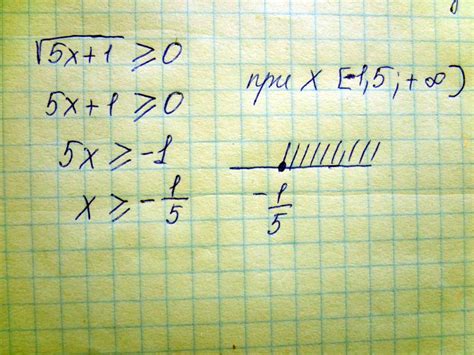 √5x+1 ⩾ 0
5x+1 ⩾ 0
5x ⩾ -1
x ⩾ -1/5
при x [-1,5; +∞)
-1/5